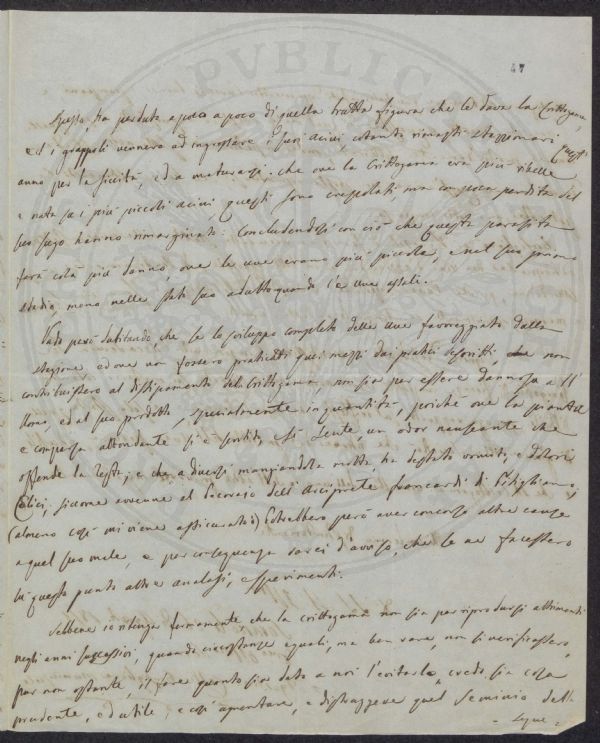 47
spessa, ha perduta a poco a poco di quella trista figura che le dava la Crittogama,
e i grappoli vennero ad ingrossare i suoi acini, cotanto rimasti stazzionari quest'
anno per la siccità, ed a maturarsi. Che ove la Crittogama era più ribelle
e nata su i più piccoli acini, questi sono crepolati, ma con poca perdita del
suo sugo hanno rimarginato: Concludendosi con ciò che questa parassita
farà colà più danno, ove le uve erano più piccole, e nel suo primo
stadio, meno nelle stato suo adulto quando l'è uve astali.
Vado però dubitando, che se lo sviluppo completo delle uve favoreggiato dalla
stagione, ed ove non fossero praticati quei mezzi dai pratici descritti, che non
constituissero al dissipamento della Crittogama, non sia per essere dannosa a ll'
Uomo, ed al suo prodotto, specialmente in quantità, perchè ove la pianta
è comparsa abbondante si è sentito, e si sente, un odor nauseante che
offende la testa; e che a diversi mangiandola molta, ha destato vomiti, e dolori
colici, siccome avvenne al Pecorajo dell'Arciprete Francardi di Pitigliano,
(almeno così mi viene assicurato) Potrebbero però aver concorso altre cause
a quel suo male, e per conseguenza sarei d'avviso, che se ne facessero
su questo punto altre analisi, e sperimenti.
Sebbene io ritenga fermamente, che la crittogama non sia per riprodursi altrimenti
negli anni successivi, quando circostanze eguali, ma ben rare, non si verificassero,
pur non ostante, il fare quanto sia dato a noi l'evitarla, credo sia cosa
prudente, ed utile, e così amentare, e distruggere quel seminio della
= segue =